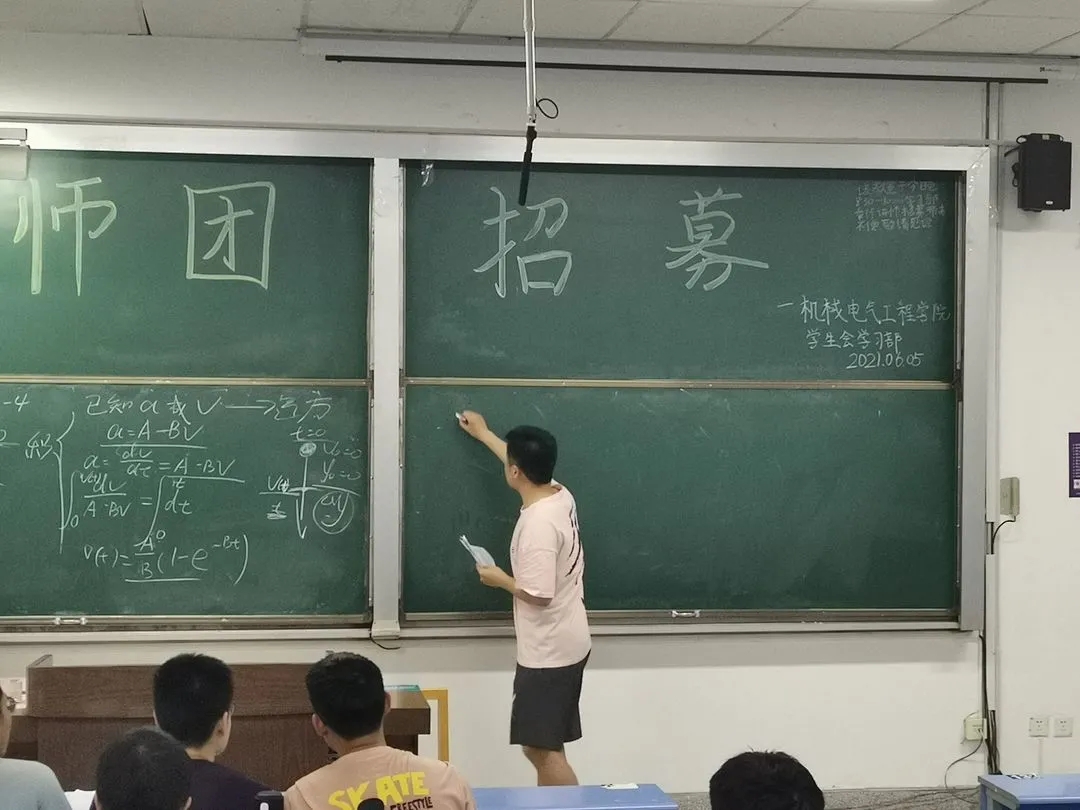 师团 招募
一机械电气工程学院
学生会学习部
2021.06.05
已知a或V→运方
a=A-BV
a=dv/dt=A-BV
dv/A-BV=dt
V(t)=A/B(1-e^-Bt)
t=0
V₀=0
y₀=0
SKATE
FREESTYLE